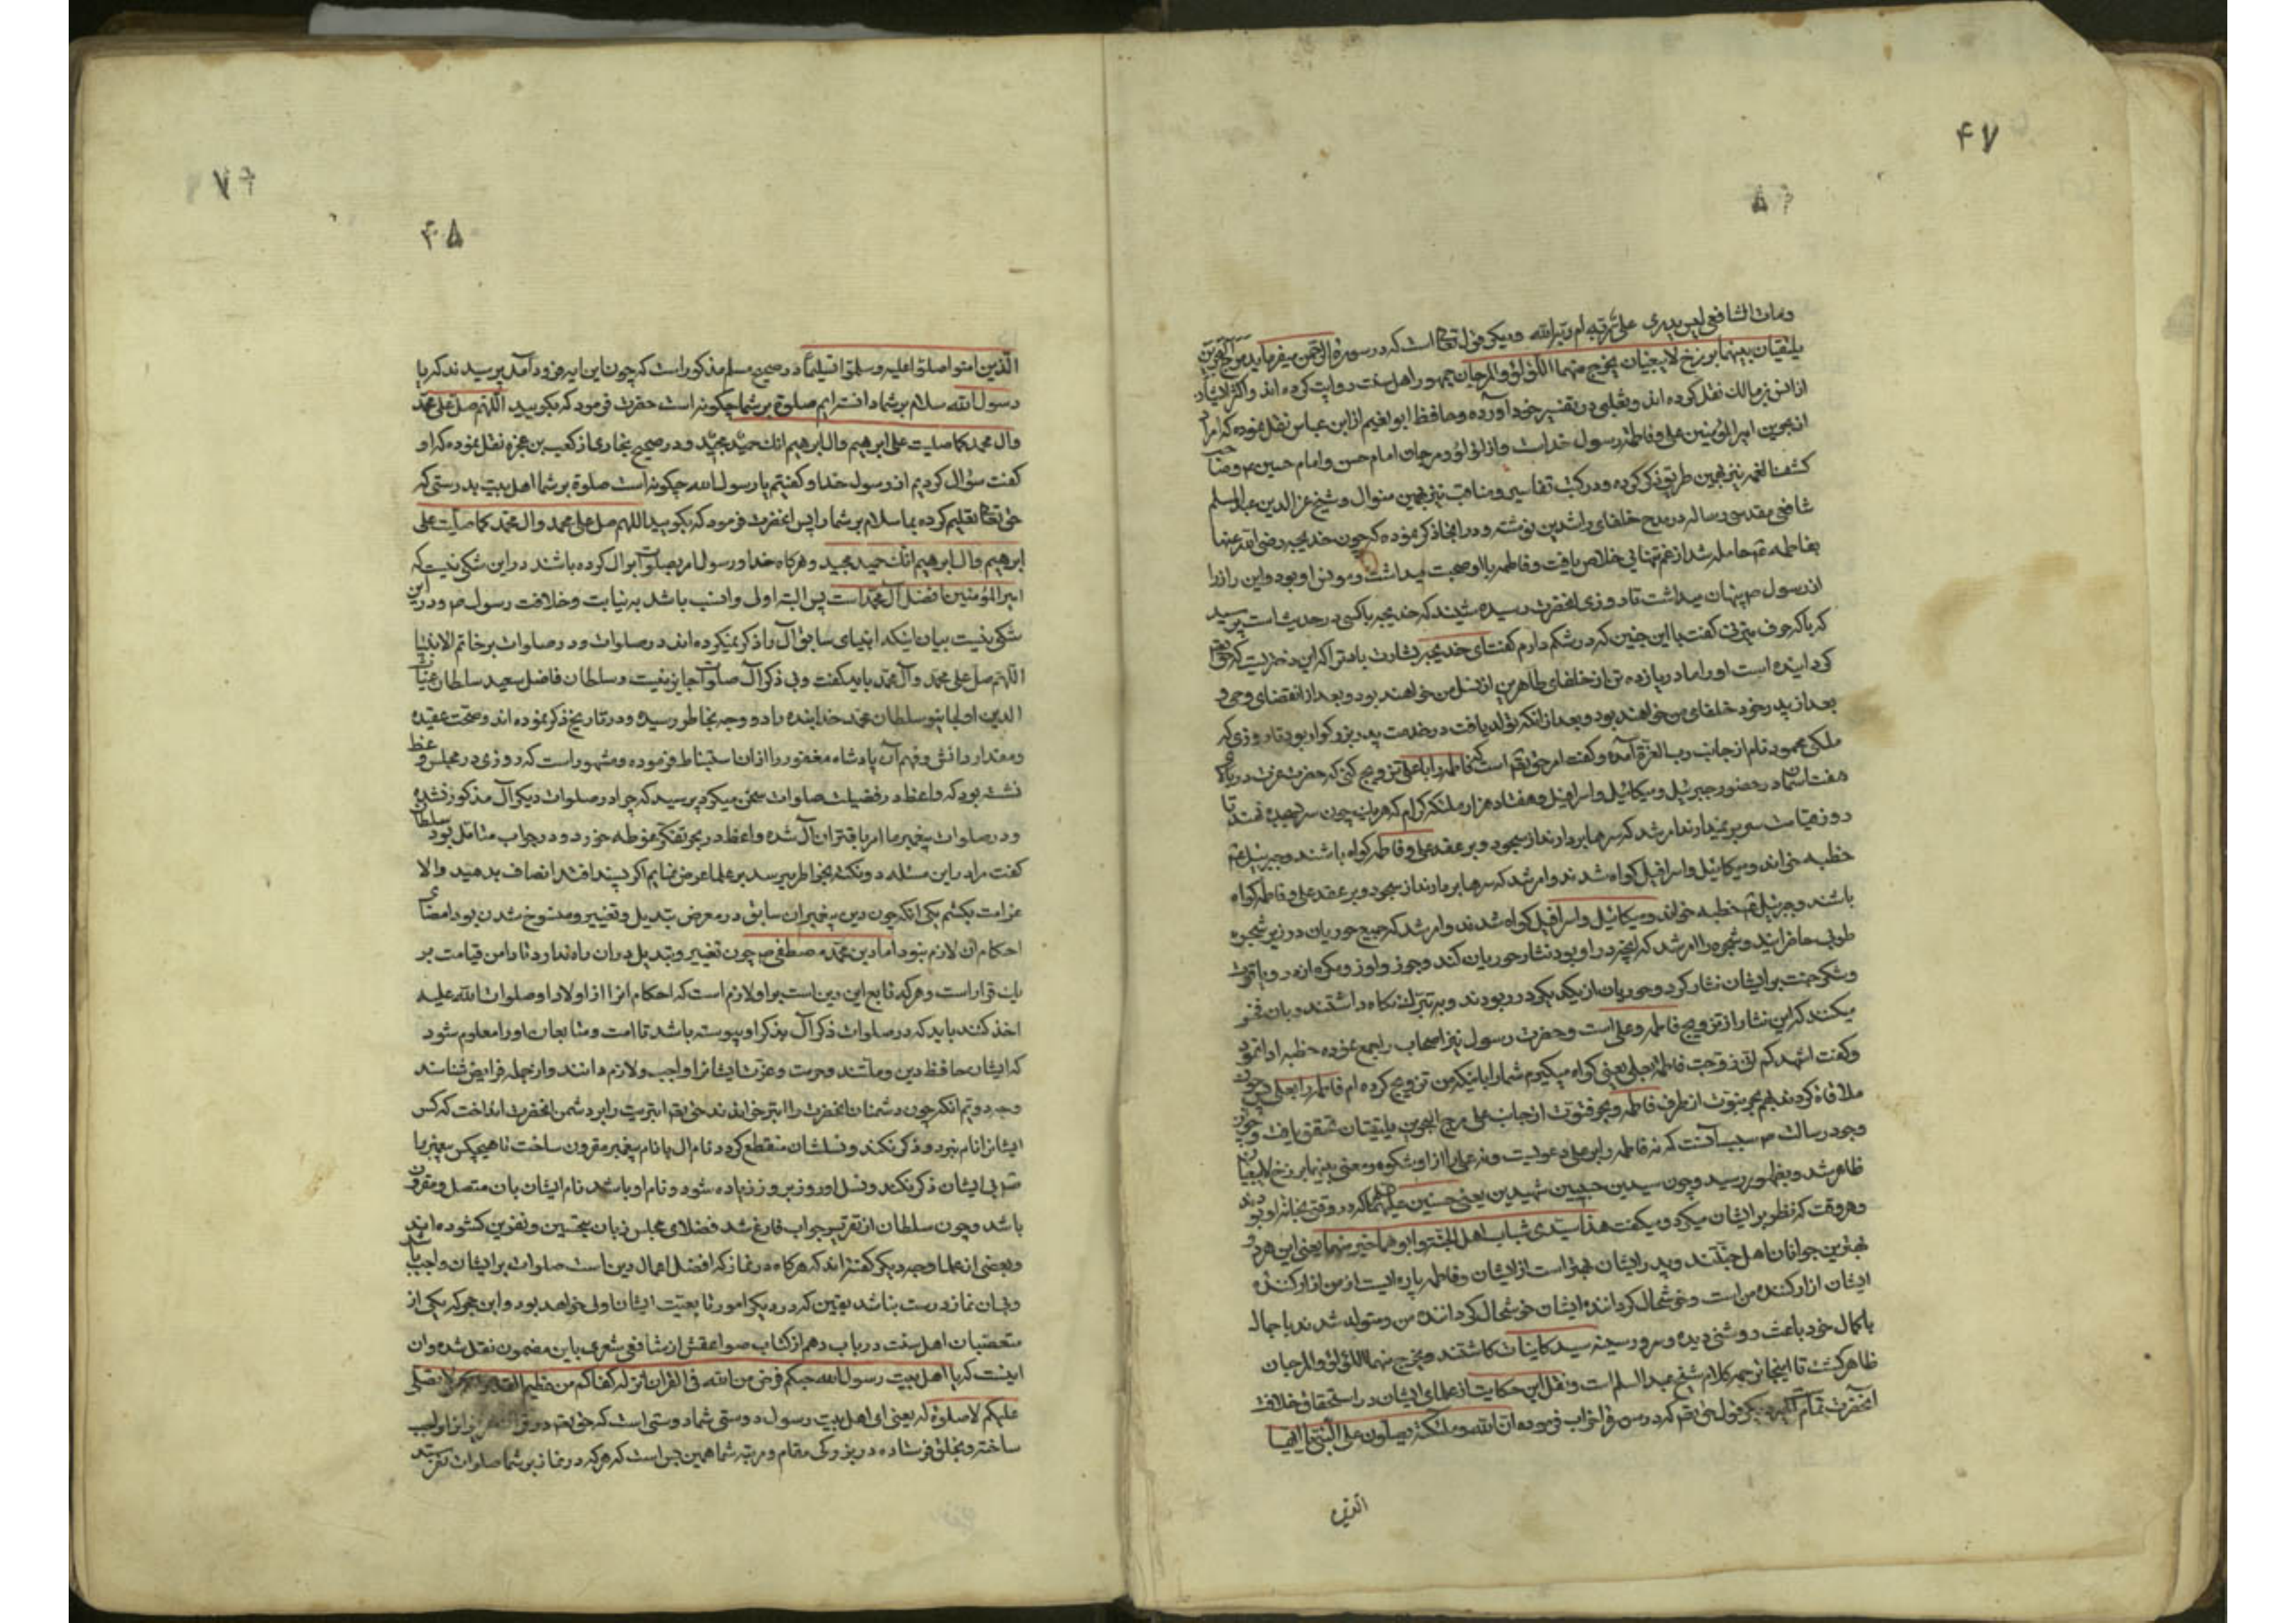 ۴۷
ومات الشافعی لیس یدری علی ربه ام ربه الله و دیگر قول تعالی است که در سورة الرحمن میفرماید مرج البحرین
یلتقیان بینهما برزخ لا یبغیان یخرج منهما اللؤلؤ والمرجان جمهور اهل سنت روایت کرده اند و اکثر ایشان
از انس بن مالک نقل کرده اند و ثعلبی در تفسیر خود آورده و حافظ ابو نعیم از ابن عباس نقل نموده که مراد
از بحرین امیر المؤمنین علی و فاطمه رسول خداست و از لؤلؤ و مرجان امام حسن و امام حسین م وصاحب
کشف الغمه نیز بهمین طریق ذکر کرده و در کتب تفاسیر و مناقب نیز بهمین منوال و شیخ عز الدین عبد السلم
شافعی مقدسی رساله در مدح خلفای راشدین نوشته و در انجا ذکر نموده که چون خدیجه رضی الله عنها
بفاطمه ع حامله شد از غم تنهایی خلاص یافت و فاطمه با او صحبت میداشت و مونس او بود و این راز را
از رسول ص پنهان میداشت تا روزی انحضرت رسیده شنیدند که خدیجه باکسی در حدیث است پرسید
که با که حرف میزنی گفت با این جنین که در شکم دارم گفت ای خدیجه بشارت باد ترا که این دختریست که حقتعالی
گردانیده است او را مادر یازده تن از خلفای طاهرین از نسل من خواهند بود و بعد از انقضای وحی و
بعد از پدر خود خلفای من خواهند بود و بعد از انکه تولد یافت در خدمت پدر بزرگوار بود تا روزی که
ملکی محمود نام از جانب رب العزة آمده و گفت امر حق تعم است که فاطمه را با علی تزویج کنی که حضرت عزت در بالای
هفت اسمان در حضور جبرئیل و میکائیل و اسرافیل و هفتاد هزار ملئکه کرام که هریک چون سر بسجده نهند تا
روز قیامت سر بر نمیدارند امر شد که سرها بردارند از سجود و بر عقد علی و فاطمه گواه باشند و جبرئیل ع
خطبه خواند و میکائیل و اسرافیل گواه شدند و امر شد که سرها بردارند از سجود و بر عقد علی و فاطمه گواه
باشند و جبرئیل ع خطبه خواند و میکائیل و اسرافیل گواه شدند و امر شد که جمیع حوریان در زیر شجره
طوبی حاضر ایند و شجره را امر شد که انچه در او بود نثار حوریان کند و جوز و لوز و شکر از در و یاقوت
وشکر جنت بر ایشان نثار کرد و حوریان از یکدیگر در ربودند و به تبرک نگاه داشتند و بان فخر
میکنند که این نثار از تزویج فاطمه و علی است و حضرت رسول نیز اصحاب را جمع نموده خطبه ادا نمود
وگفت اشهدکم انی زوجت فاطمة بعلی یعنی گواه میگیرم شما را بانیکه من تزویج کرده ام فاطمه را بعلی و چون
ملاقات کردند بهم بحر نبوت از طرف فاطمه و بحر فتوت از جانب علی مرج البحرین یلتقیان متحقق یافت و چون
وجود رسالت ص سبب آنست که نه فاطمه را بر علی دعویست و نه علی را از او شکوه و معنی بینهما برزخ لا یبغیان
ظاهر شد و بظهور رسید و چون سیدین حبیبین شهیدین یعنی حسنین علیهما که در وقتی بخانه او بودند
وهر وقت که نظر بر ایشان میکرد و میگفت هذا سیدی شباب اهل الجنة و ابوهما خیر منهما یعنی این هر دو
بهترین جوانان اهل جنتند و پدر ایشان بهتر است از ایشان و فاطمه پاره ایست از من ازار کننده
ایشان ازار کننده من است و خوشحال گرداننده ایشان خوشحال گرداننده من و متولد شدند با جمال
با کمال خود باعث روشنی دیده و سرور سینه سید کاینات گشتند و یخرج منهما اللؤلؤ والمرجان
ظاهر گشت تا اینجا ترجمه کلام شیخ عبد السلم است و نقل این حکایت از علمای ایشان در استحقاق خلافت
انحضرت تمام است دیگر قول حق تعم که در سورة احزاب فرموده ان الله وملئکته یصلون علی النبی یا ایها
الذین
۴۸
الذین امنوا صلوا علیه وسلموا تسلیما در صحیح مسلم مذکور است که چون این ایه فرود آمد پرسیدند که یا
رسول الله سلام بر شما دانسته ایم صلوة بر شما چگونه است حضرت فرمود که بگویید اللهم صل علی محمد
وال محمد کما صلیت علی ابرهیم وال ابرهیم انک حمید مجید و در صحیح بخاری از کعب بن عجزه نقل نموده که او
گفت سؤال کردیم از رسول خدا و گفتیم یا رسول الله چگونه است صلوة بر شما اهل بیت بدرستی که
حق تعالی تعلیم کرده بما سلام بر شما را پس انحضرت فرمود که بگویید اللهم صل علی محمد وال محمد کما صلیت علی
ابرهیم وال ابرهیم انک حمید مجید و هرگاه خدا و رسول امر بصلوات بر ال کرده باشند در این شکی نیست که
امیر المؤمنین افضل آل محمد است پس البته اولی و انسب باشد به نیابت و خلافت رسول ص و در این
شکی نیست بیان اینکه انبیای سابق آل را ذکر نمیکرده اند در صلوات و در صلوات بر خاتم الانبیا
اللهم صل علی محمد وآل محمد باید گفت و بی ذکر آل صلوات جایز نیست و سلطان فاضل سعید سلطان غیاث
الدین اولجایتو سلطان محمد خدابنده را دو وجه بخاطر رسیده و در تاریخ ذکر نموده اند و صحت عقیده
ومقدار دانش و فهم آن پادشاه مغفور را از ان استنباط فرموده و مشهور است که روزی در مجلس وعظ
نشسته بود که واعظ در فضیلت صلوات سخن میکرد پرسید که چرا در صلوات دیگر آل مذکور نشده
ودر صلوات پیغمبر ما امر باقتران آل شده واعظ در بحر تفکر غوطه خورد و در جواب متامل بود سلطان
گفت مراد این مسئله دو نکته بخاطر میرسد بر علما عرض نمایم اگر پسند افتد انصاف بدهید والا
غرامت بکشم یکی انکه چون دین پیغمبران سابق در معرض تبدیل و تغییر و منسوخ شدن بود امضای
احکام ان لازم نبود اما دین محمد مصطفی ص چون تغییر و تبدیل در ان راه ندارد تا دامن قیامت بر
یک قرار است و هر که تابع این دین است بر او لازم است که احکام انرا از اولاد او صلوات الله علیه
اخذ کنند باید که در صلوات ذکر آل بذکر او پیوسته باشد تا امت و متابعان او را معلوم شود
که ایشان حافظ دین و ملتند و حرمت و عزت ایشانرا واجب و لازم دانند و از جمله فرایض شناسند
وجه دویم انکه چون دشمنان انحضرت را ابتر خواندند حق تعم ابتریت را بر دشمن انحضرت انداخت که کس
ایشانرا نام نبرد و ذکر نکند و نسلشان منقطع گردد و نام ال با نام پیغمبر مقرون ساخت تا هیچکس پیغمبر را
بی ایشان ذکر نکند و نسل او روز بروز زیاده شود و نام او باشد نام ایشان بان متصل و مقرون
باشد و چون سلطان از تقریر جواب فارغ شد فضلای مجلس زبان بتحسین و افرین گشوده اند
وبعضی از علما وجه دیگر گفته اند که هرگاه در نماز که افضل اعمال دین است صلوات بر ایشان واجب باشد
وبی ان نماز درست نباشد یقین که در دیگر امور تابعیت ایشان اولی خواهد بود و ابن حجر که یکی از
متعصبان اهل سنت در باب دهم از کتاب صواعقش از شافعی شعری باین مضمون نقل شده و ان
اینست که یا اهل بیت رسول الله حبکم فرض من الله فی القران انزله کفاکم من عظیم القدر لا یصلی
علیکم لا صلوة له یعنی ای اهل بیت رسول دوستی شما دوستی است که حق تعم در قران انرا واجب
ساخته و بخلق فرستاده در بزرگی مقام و مرتبه شما همین بس است که هر که در نماز بر شما صلوات نفرستد